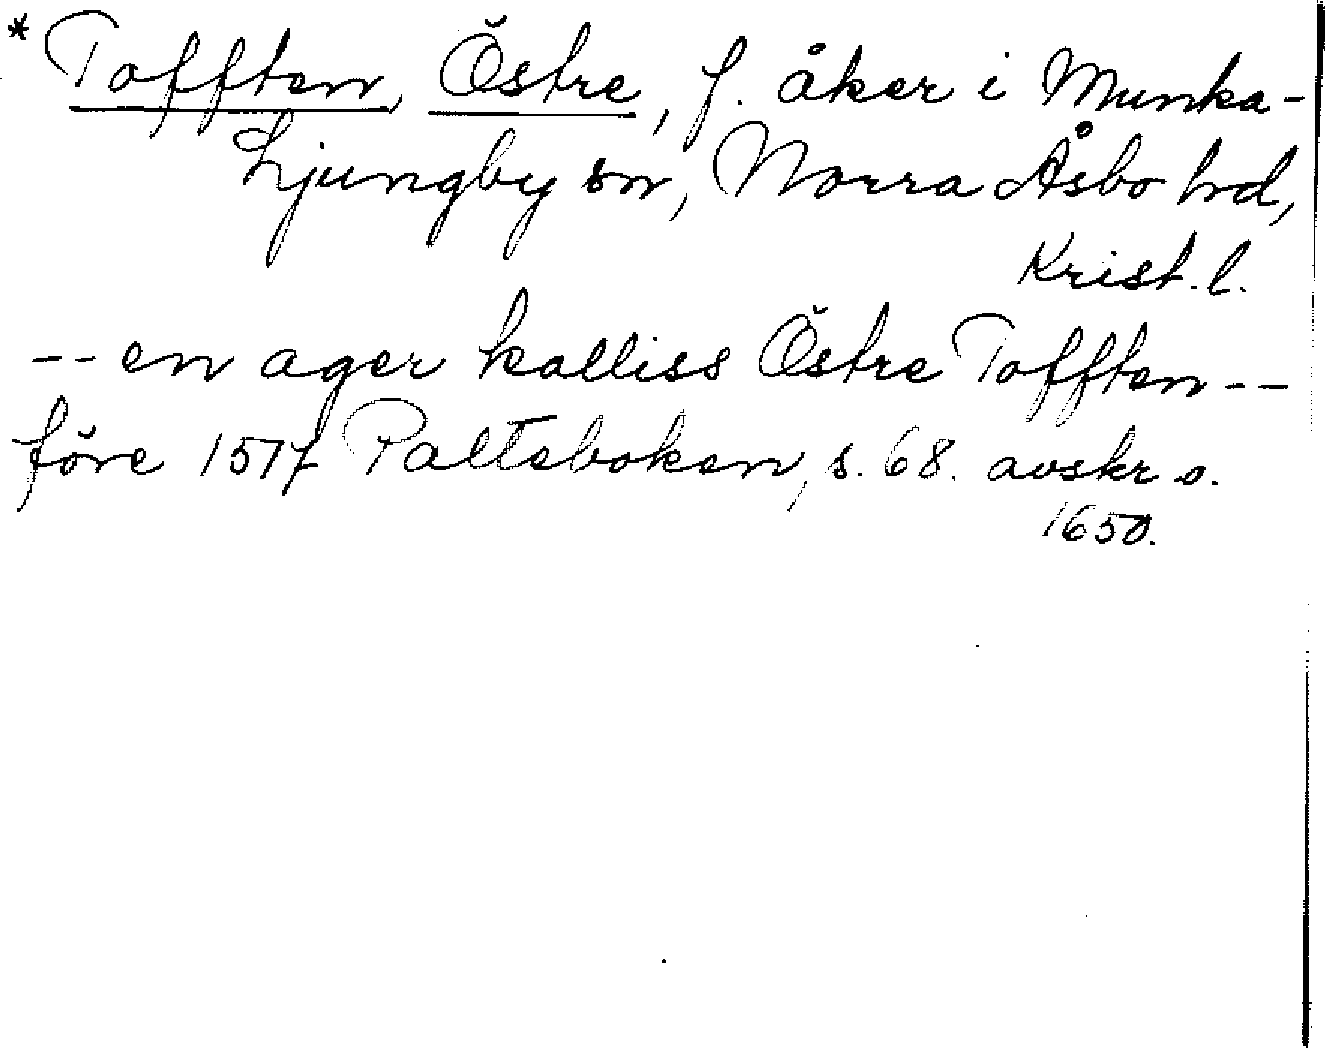 * Tofften, Östre, f. åker i Munka-
Ljungby sn, Norra Åsbo hd,
Krist. l.
-- en ager kalliss Östre Tofften --
före 1517 Palteboken, s. 68. avskr o.
1650.